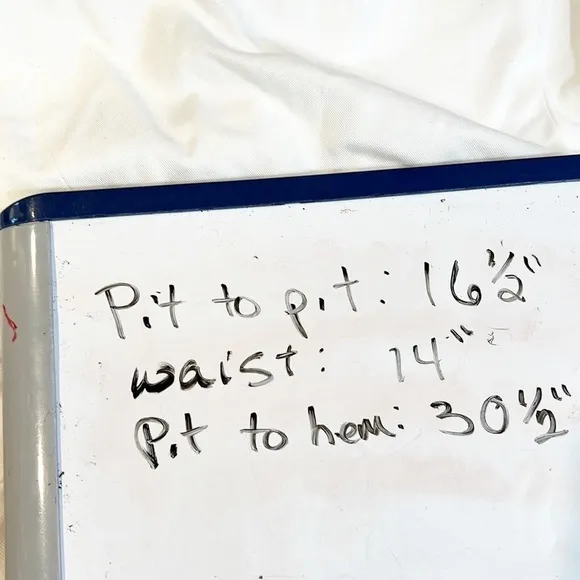 Pit to pit: 16 1/2"
waist: 14"
Pit to hem: 30 1/2"